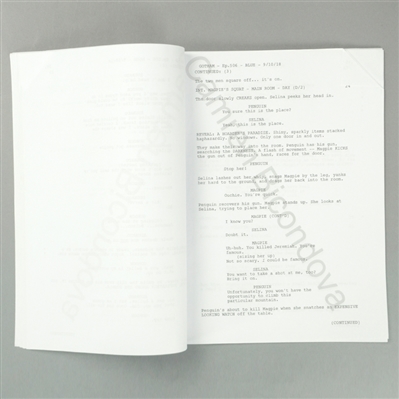 GOTHAM - Ep.506 - BLUE - 9/10/18
CONTINUED: (3)
The two men square off... it's on.
INT. MAGPIE'S SQUAT - MAIN ROOM - DAY (D/2)
The door slowly CREAKS open. Selina peeks her head in.
PENGUIN
You sure this is the place?
SELINA
This is the place.
REVEAL: A HOARDER'S PARADISE. Shiny, sparkly items stacked
haphazardly. No windows. Only one door in and out.
They make their way into the room. Penguin has his gun,
searching the A flash of movement -- Magpie KICKS
the gun out of Penguin's hand, races for the door.
PENGUIN
Stop her!
Selina lashes out her whip, snags Magpie by the leg, yanks
her hard to the ground, and drags her back into the room.
MAGPIE
You're
Penguin recovers his gun. Magpie stands up. She looks at
Selina, trying to place her.
MAGPIE (CONT'D)
I know you?
SELINA
Doubt it.
MAGPIE
Uh-huh. You killed Jeremiah. You're
famous.
(sizing her up)
Not so scary. I could be famous.
SELINA
You want to take a shot at me,
Bring it on.
PENGUIN
Unfortunately, you won't have the
opportunity to climb this
particular mountain.
Penguin's about to kill Magpie when she snatches an EXPENSIVE
LOOKING WATCH off the table.
(CONTINUED)
Camren Bicondova